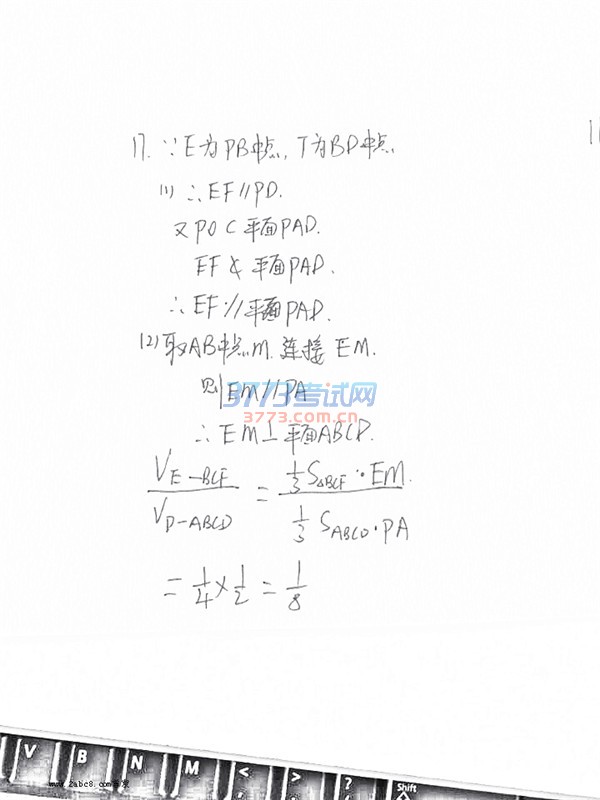 17. ∵E为PB中点, F为BD中点
(1) ∴EF∥PD.
又PD⊂平面PAD.
EF⊄平面PAD.
∴EF∥平面PAD.
(2)取AB中点M.连接EM.
则EM∥PA
3773考试网
3773.com.cn
∴EM⊥平面ABCD.
V_{E-BCF}/V_{P-ABCD} = (1/3 S_{△BCF}·EM)/(1/3 S_{ABCD}·PA)
= 1/4 × 1/2 = 1/8
V B N M < > ? Shift